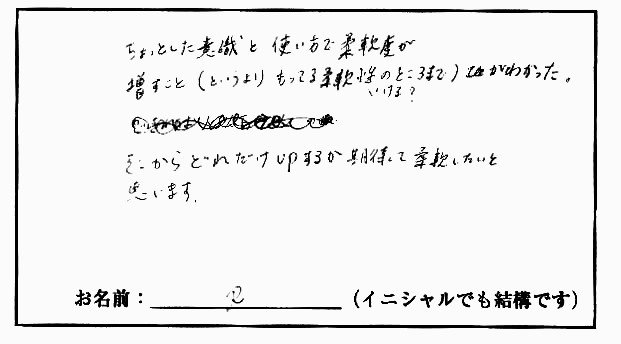 ちょっとした意識と使い方で柔軟度が
増すこと(というよりもってる柔軟性のところまで)がわかった。
いける?
そこからどれだけUPするか期待して柔軟したいと
思います。
お名前: (イニシャルでも結構です)